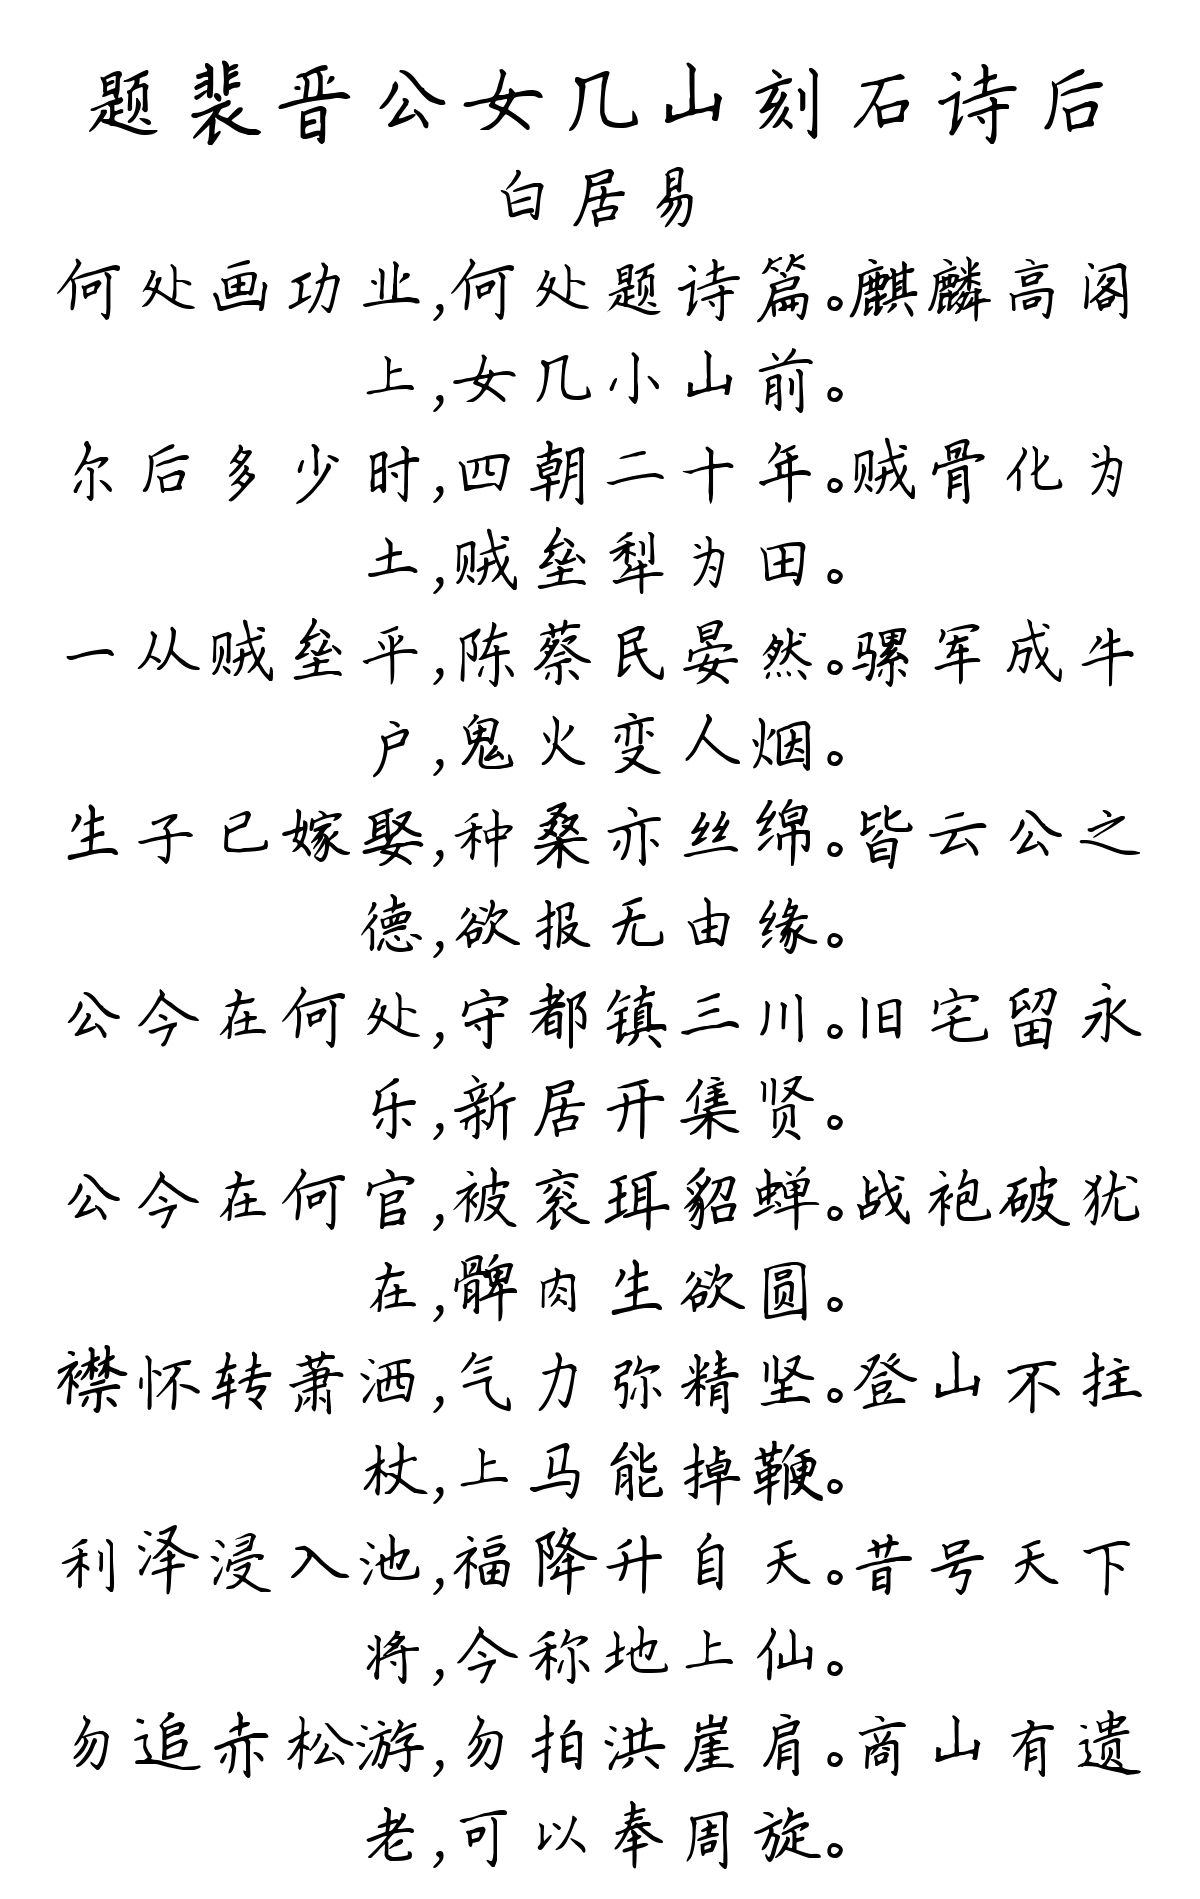 题裴晋公女几山刻石诗后
白居易
何处画功业,何处题诗篇。麒麟高阁
上,女几小山前。
尔后多少时,四朝二十年。贼骨化为
土,贼垒犁为田。
一从贼垒平,陈蔡民晏然。骡军成牛
户,鬼火变人烟。
生子已嫁娶,种桑亦丝绵。皆云公之
德,欲报无由缘。
公今在何处,守都镇三川。旧宅留永
乐,新居开集贤。
公今在何官,被衮珥貂蝉。战袍破犹
在,髀肉生欲圆。
襟怀转萧洒,气力弥精坚。登山不拄
杖,上马能掉鞭。
利泽浸入池,福降升自天。昔号天下
将,今称地上仙。
勿追赤松游,勿拍洪崖肩。商山有遗
老,可以奉周旋。